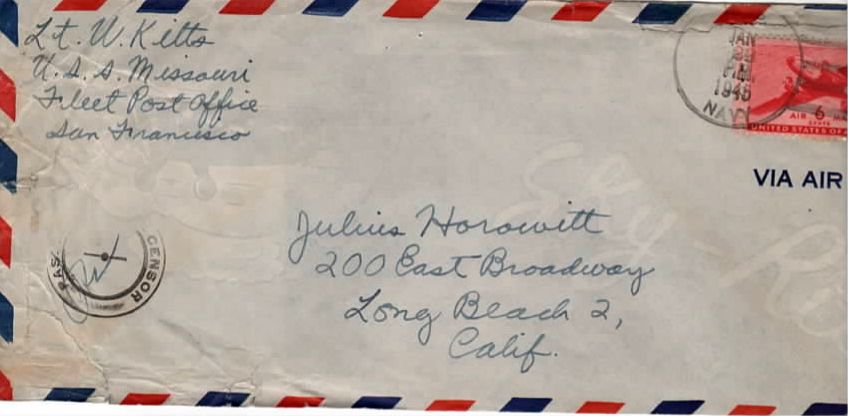 Lt. W. Kitts
U.S.S. Missouri
Fleet Post Office
San Francisco
JAN
PM
1945
NAVY
AIR 6
UNITED STATES OF A
VIA AIR
PAS
CENSOR
Julius Horowitt
200 East Broadway
Long Beach 2,
Calif.